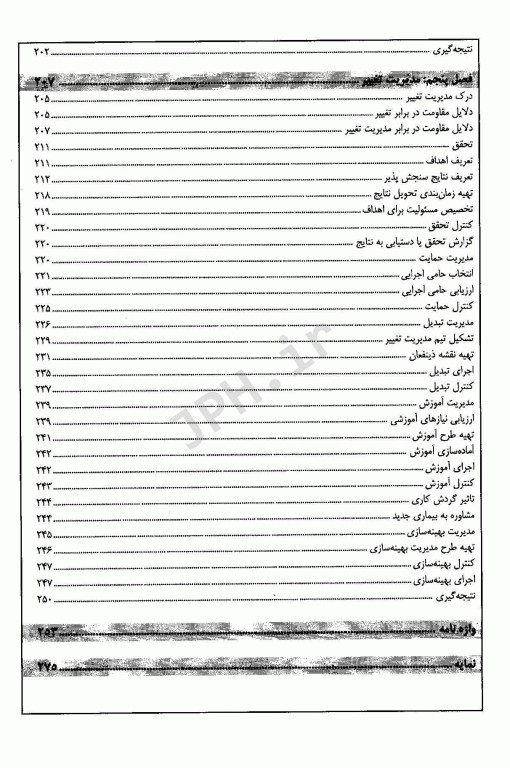 نتیجه‌گیری ۲۰۲
فصل پنجم: مدیریت تغییر
درک مدیریت تغییر ۲۰۵
دلایل مقاومت در برابر تغییر ۲۰۵
دلایل مقاومت در برابر مدیریت تغییر ۲۰۷
تحقق ۲۱۱
تعریف اهداف ۲۱۱
تعریف نتایج سنجش پذیر ۲۱۲
تهیه زمان‌بندی تحویل نتایج ۲۱۸
تخصیص مسئولیت برای اهداف ۲۱۹
کنترل تحقق ۲۲۰
گزارش تحقق یا دستیابی به نتایج ۲۲۰
مدیریت حمایت ۲۲۰
انتخاب حامی اجرایی ۲۲۱
ارزیابی حامی اجرایی ۲۲۳
کنترل حمایت ۲۲۵
مدیریت تبدیل ۲۲۶
تشکیل تیم مدیریت تغییر ۲۲۹
تهیه نقشه ذینفعان ۲۳۱
اجرای تبدیل ۲۳۵
کنترل تبدیل ۲۳۷
مدیریت آموزش ۲۳۹
ارزیابی نیازهای آموزشی ۲۳۹
تهیه طرح آموزش ۲۴۱
آماده‌سازی آموزش ۲۴۲
اجرای آموزش ۲۴۲
کنترل آموزش ۲۴۳
تاثیر گردش کاری ۲۴۴
مشاوره به بیماری جدید ۲۴۴
مدیریت بهینه‌سازی ۲۴۵
تهیه طرح مدیریت بهینه‌سازی ۲۴۶
کنترل بهینه‌سازی ۲۴۷
اجرای بهینه‌سازی ۲۴۷
نتیجه‌گیری ۲۵۰
واژه نامه ۲۵۳
نمایه ۲۷۵
JPH.ir